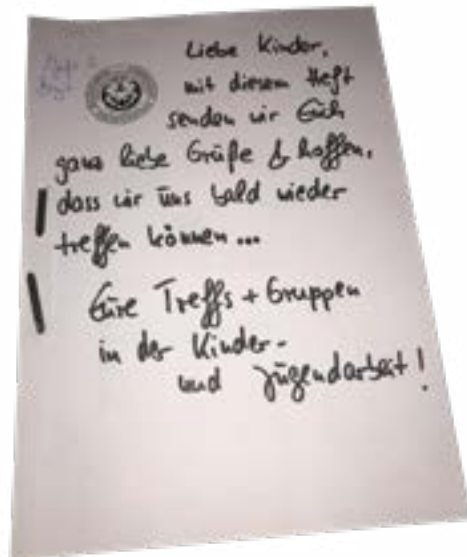 Liebe Kinder,
mit diesem Heft
senden wir Euch
ganz liebe Grüße & hoffen,
dass wir uns bald wieder
treffen können...
Eure Treffs + Gruppen
in der Kinder-
und Jugendarbeit!